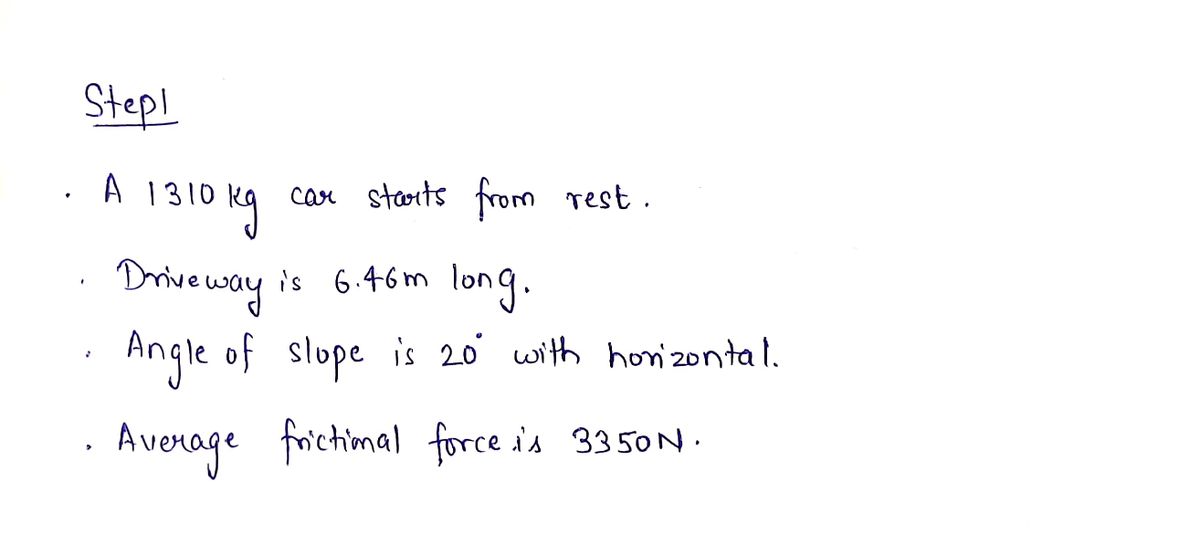 Step1
. A 1310 kg car starts from rest.
. Driveway is 6.46m long.
. Angle of slope is 20° with horizontal.
. Average frictimal force is 3350N.